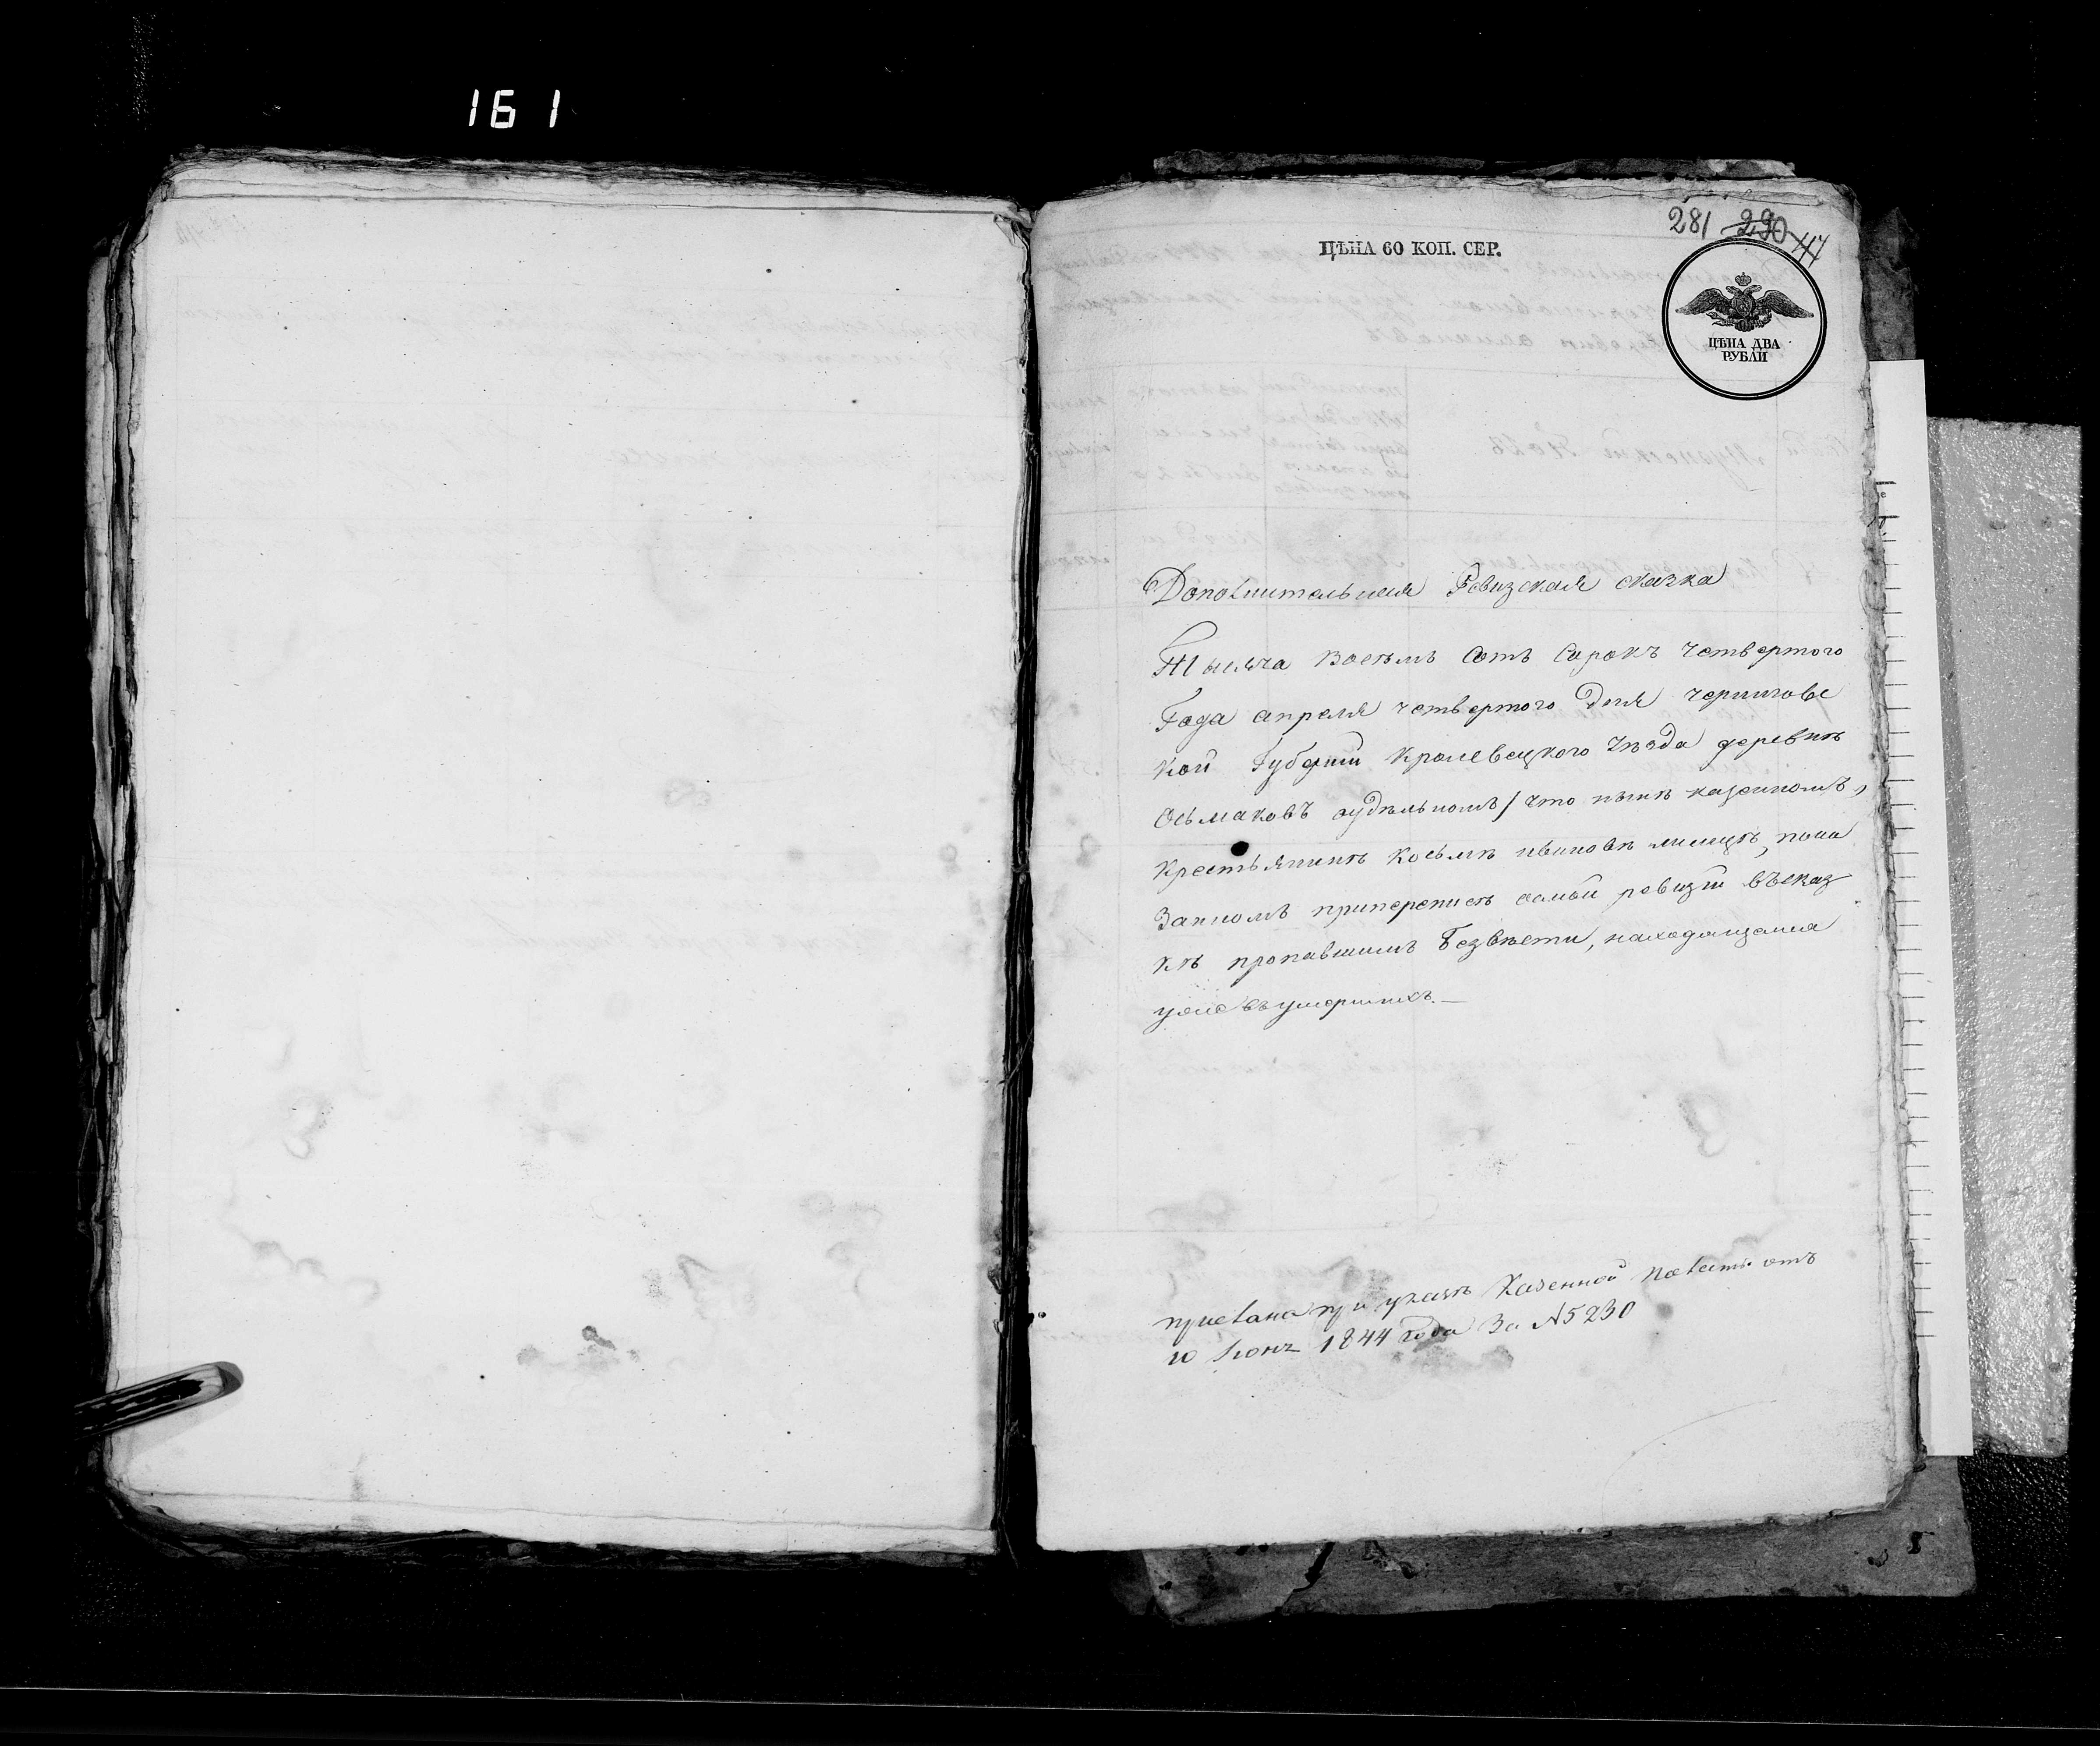 161
281 290 47
ЦѢНА 60 КОП. СЕР.
ЦѢНА ДВА
РУБЛИ
Дополнительная Ревизская сказка
Тысяча Восемь Сотъ Сорокъ Четвертого
Года апреля четвертого Дня чернигове
кой Губернии Кролевецкого Уѣзда деревни
Осьмаковъ удѣльномъ / что нынѣ казенномъ,
крестьянинѣ Косьмѣ ивановѣ пока
Занномъ приперепись осмой ревизии въсказ
кѣ пропавшимъ Безвѣсти, находящемся
уже въ умершихъ. —
прислана при указѣ Казенной Палаты отъ
10 Iюнz 1844 года За №5230